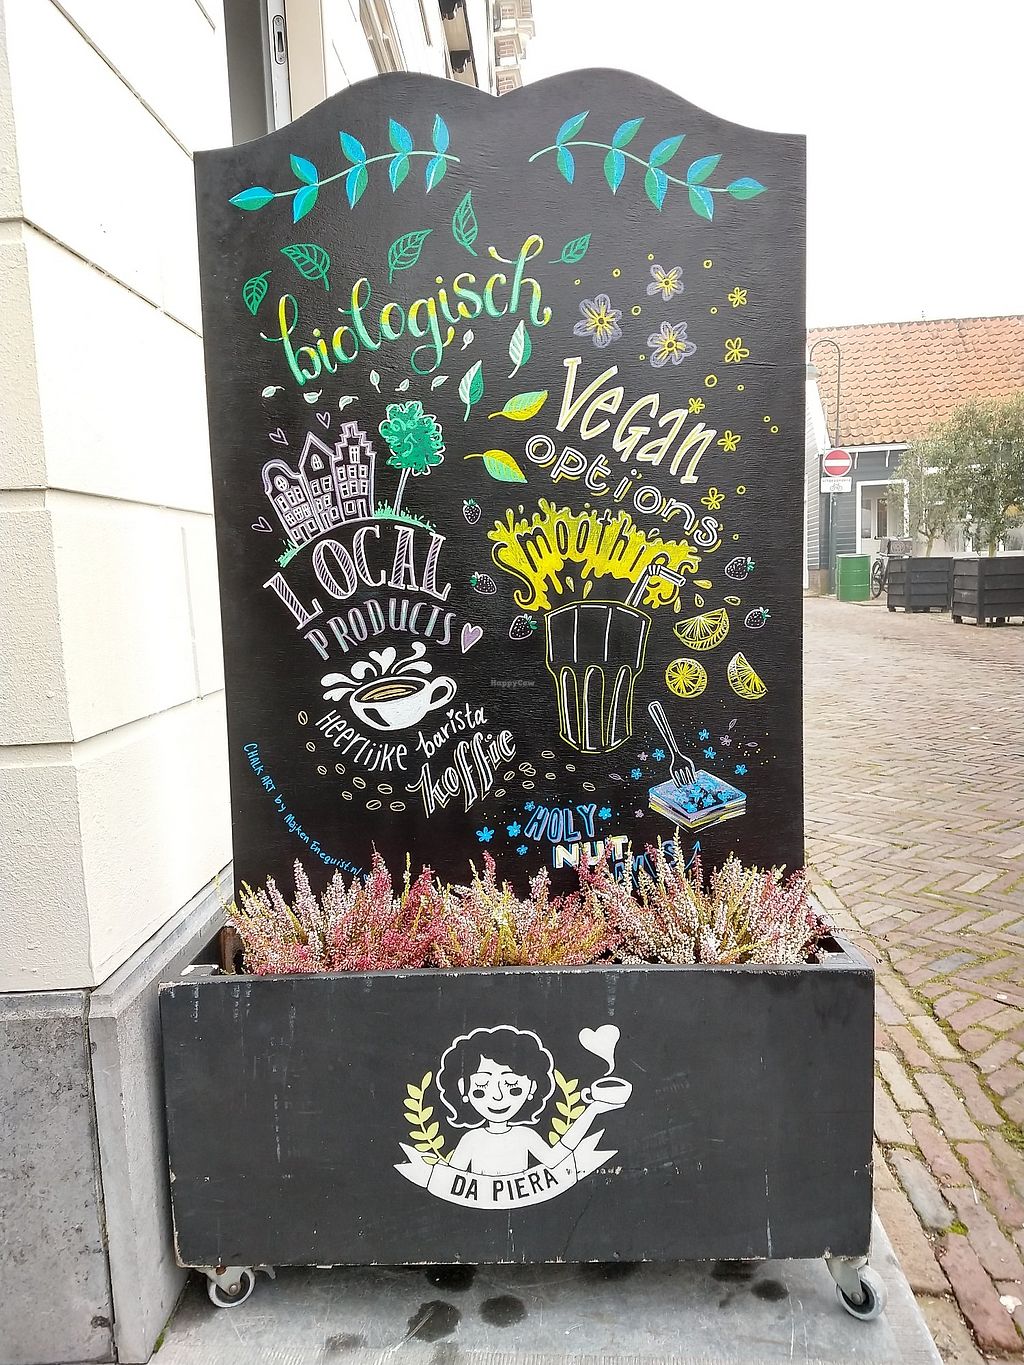 biologisch
Vegan
options
LOCAL
PRODUCTS
Smoothies
HEERLIJKE barista
koffie
HOLY
NUT
CHALK ART by Majken Enequist.nl
DA PIERA
HappyCow